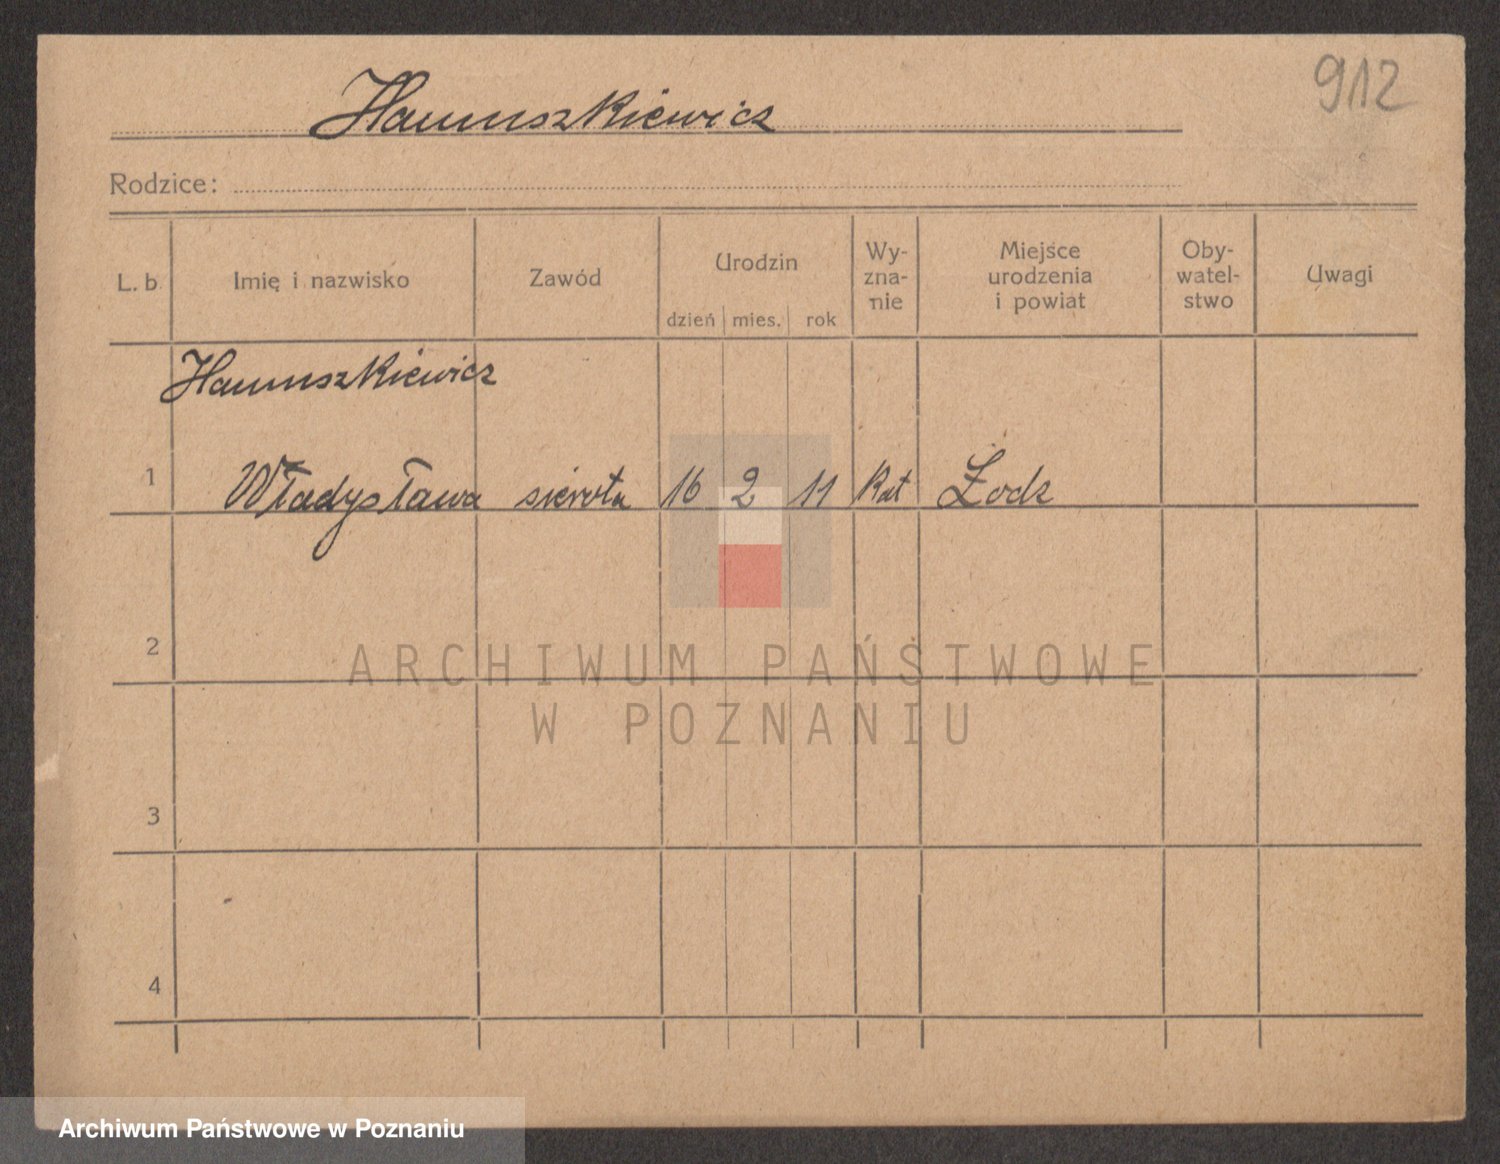 912
Hanuszkiewicz
Rodzice:
L. b. Imię i nazwisko Zawód Urodzin dzień mies. rok Wy-zna-nie Miejsce urodzenia i powiat Oby-watel-stwo Uwagi
Hanuszkiewicz
1 Władysława sierota 16 2 11 Kat Łodz
2
ARCHIWUM PAŃSTWOWE
W POZNANIU
3
4
Archiwum Państwowe w Poznaniu